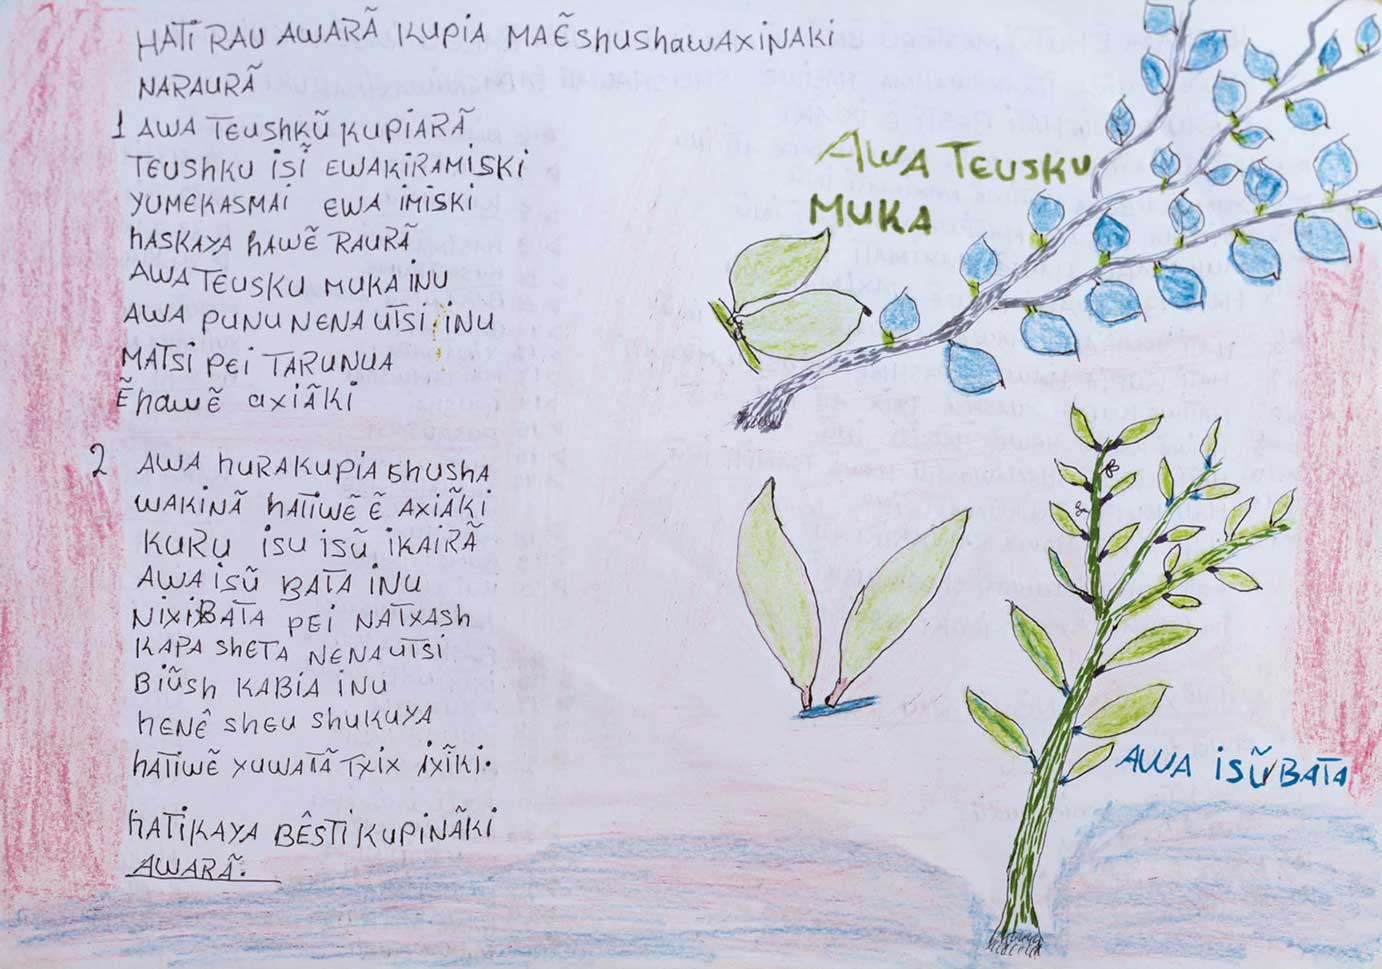 HATI RAU AWARÃ KUPIA MAẼSHUSHAWAXINAKI
NARAURÃ
1 AWA TEUSHKŨ KUPIARÃ
TEUSHKU ISĨ EWAKIRAMISKI
YUMEKASMAI EWA IMISKI
HASKAYA HAWẼ RAURÃ
AWA TEUSKU MUKA INU
AWA PUNU NENA UTSI INU
MATSI PEI TARUNUA
ẼHAWẼ AXIÃKI
2 AWA HURAKUPIA BHUSHA
WAKINÃ HATIWẼ Ẽ AXIÃKI
KURU ISU ISŨ IKAIRÃ
AWA ISŨ BATA INU
NIXI BATA PEI NATXASH
KAPA SHETA NENA UTSI
BIŨSH KABIA INU
HENÊ SHEU SHUKUYA
HATIWẼ YUWATÃ TXIX IXĨKI.
HATIKAYA BÊSTI KUPINÃKI
AWARÃ.
AWA TEUSKU
MUKA
AWA ISŨ BATA